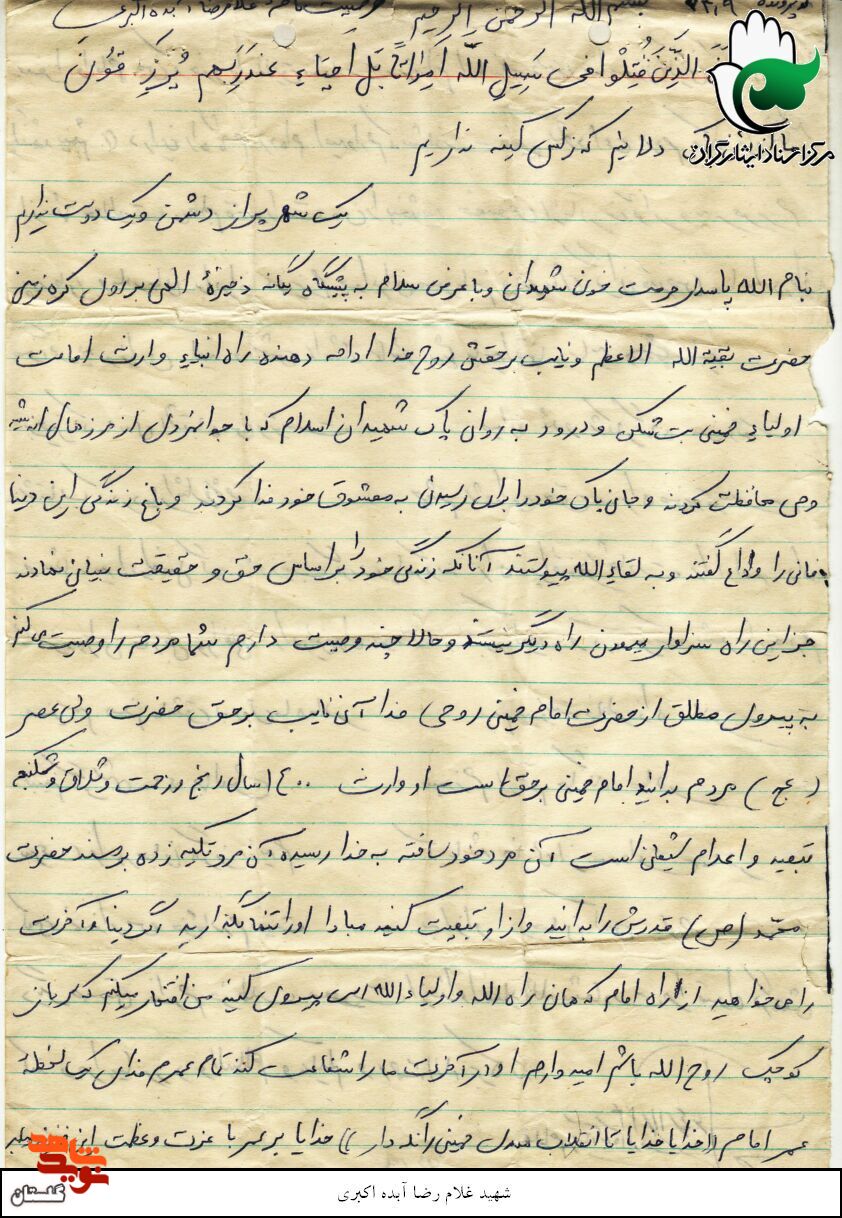 بسم الله الرحمن الرحیم
الَّذِینَ قُتِلُوا فی سَبِیلِ اللّه اَمواتاً بَل اَحیاءِ عِندَ رَبِّهِم یُرزَقُونَ
دلا یتم که زکس کینه نداریم
یک شهر پر از دشمن و یک دوست نداریم
بنام الله پاسدار حرمت خون شهیدان و با عرض سلام به پیشگاه یگانه ذخیرهٔ الهی بر روی کره زمین
حضرت بقیة الله الاعظم و نایب برحقش روح خدا ادامه دهنده راه انبیاء وارث امامت
اولیاء خمینی بت شکن و درود به روان پاک شهیدان اسلام که با جوانمردی از مرزهای اندیشه
وحی محافظت کردند و جان پاک خود را برای رسیدن به معشوق خود فدا کردند و باغ زندگی این دنیا
فانی را وداع گفتند و به لقاء الله پیوستند آنانکه زندگی خود را بر اساس حق و حقیقت بنیان نهادند
جز این راه سزاوار پیمودن راه دیگر نیستند و حالا چند وصیت دارم شما مردم را وصیت می کنم
به پیروی مطلق از حضرت امام خمینی روحی فدا آن نایب برحق حضرت ولی عصر
(عج) مردم بدانید امام خمینی برحق است او وارث ۱۴۰۰ سال رنج و زحمت و شلاق و شکنجه
تبعید و اعدام شیعان است آن مرد خود ساخته به خدا رسیده آن مرد تکیه زده بر مسند حضرت
محمد (ص) قدرش را بدانید و از او تبعیت کنید مبادا او را تنها بگذارید اگر دنیا و آخرت
را می خواهید از راه امام که همان راه الله و اولیاء الله است پیروی کنید من افتخار میکنم که سرباز
کوچک روح الله باشم امیدوارم او در آخرت ما را شفاعت کند تمام عمرم فدای یک لحظهٔ
عمر امامم ((خدایا خدایا تا انقلاب مهدی خمینی را نگه دار)) خدایا بر عمر با عزت و عظمت این
مرکز اسناد ایثارگران
نوید شاهد
گلستان
شهید غلام رضا آبده اکبری